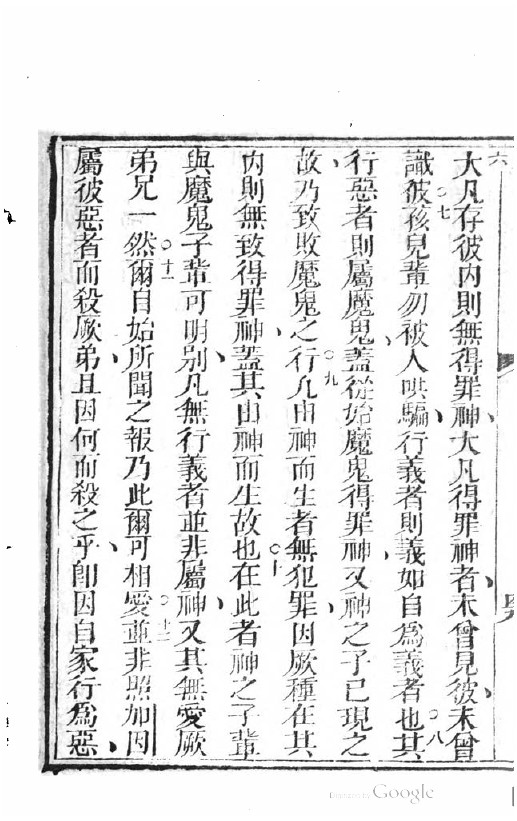 六
大凡存彼內則無得罪神、大凡得罪神者、未曾見彼、未曾
識彼○七孩兒輩勿被人哄騙、行義者則義如自為義者也○八其
行惡者則屬魔鬼、蓋從始魔鬼得罪神、又神之子已現之
故、乃致敗魔鬼之行○九凡由神而生者無犯罪、因厥種在其
內則無致得罪神、蓋其由神而生故也○十在此者神之子輩
與魔鬼子輩可明別、凡無行義者並非屬神、又其無愛厥
弟兄一然○十一爾自始所聞之報乃此爾可相愛○十二並非照加因
屬彼惡者而殺厥弟、且因何而殺之乎、即因自家行為惡、
Digitized by Google